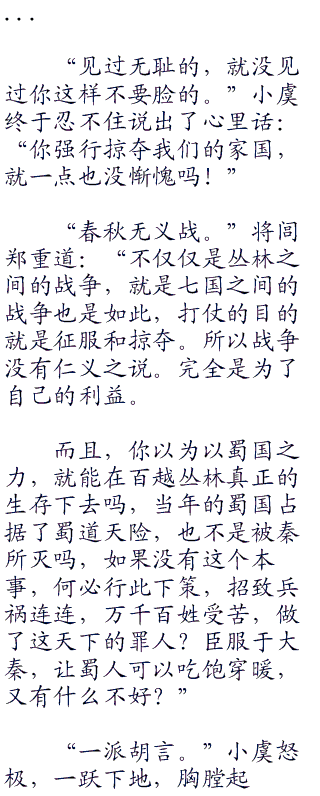 ...
“见过无耻的，就没见
过你这样不要脸的。”小虞
终于忍不住说出了心里话：
“你强行掠夺我们的家国，
就一点也没惭愧吗！”
“春秋无义战。”将闾
郑重道：“不仅仅是丛林之
间的战争，就是七国之间的
战争也是如此，打仗的目的
就是征服和掠夺。所以战争
没有仁义之说。完全是为了
自己的利益。
而且，你以为以蜀国之
力，就能在百越丛林真正的
生存下去吗，当年的蜀国占
据了蜀道天险，也不是被秦
所灭吗，如果没有这个本
事，何必行此下策，招致兵
祸连连，万千百姓受苦，做
了这天下的罪人？臣服于大
秦，让蜀人可以吃饱穿暖，
又有什么不好？”
“一派胡言。”小虞怒
极，一跃下地，胸膛起